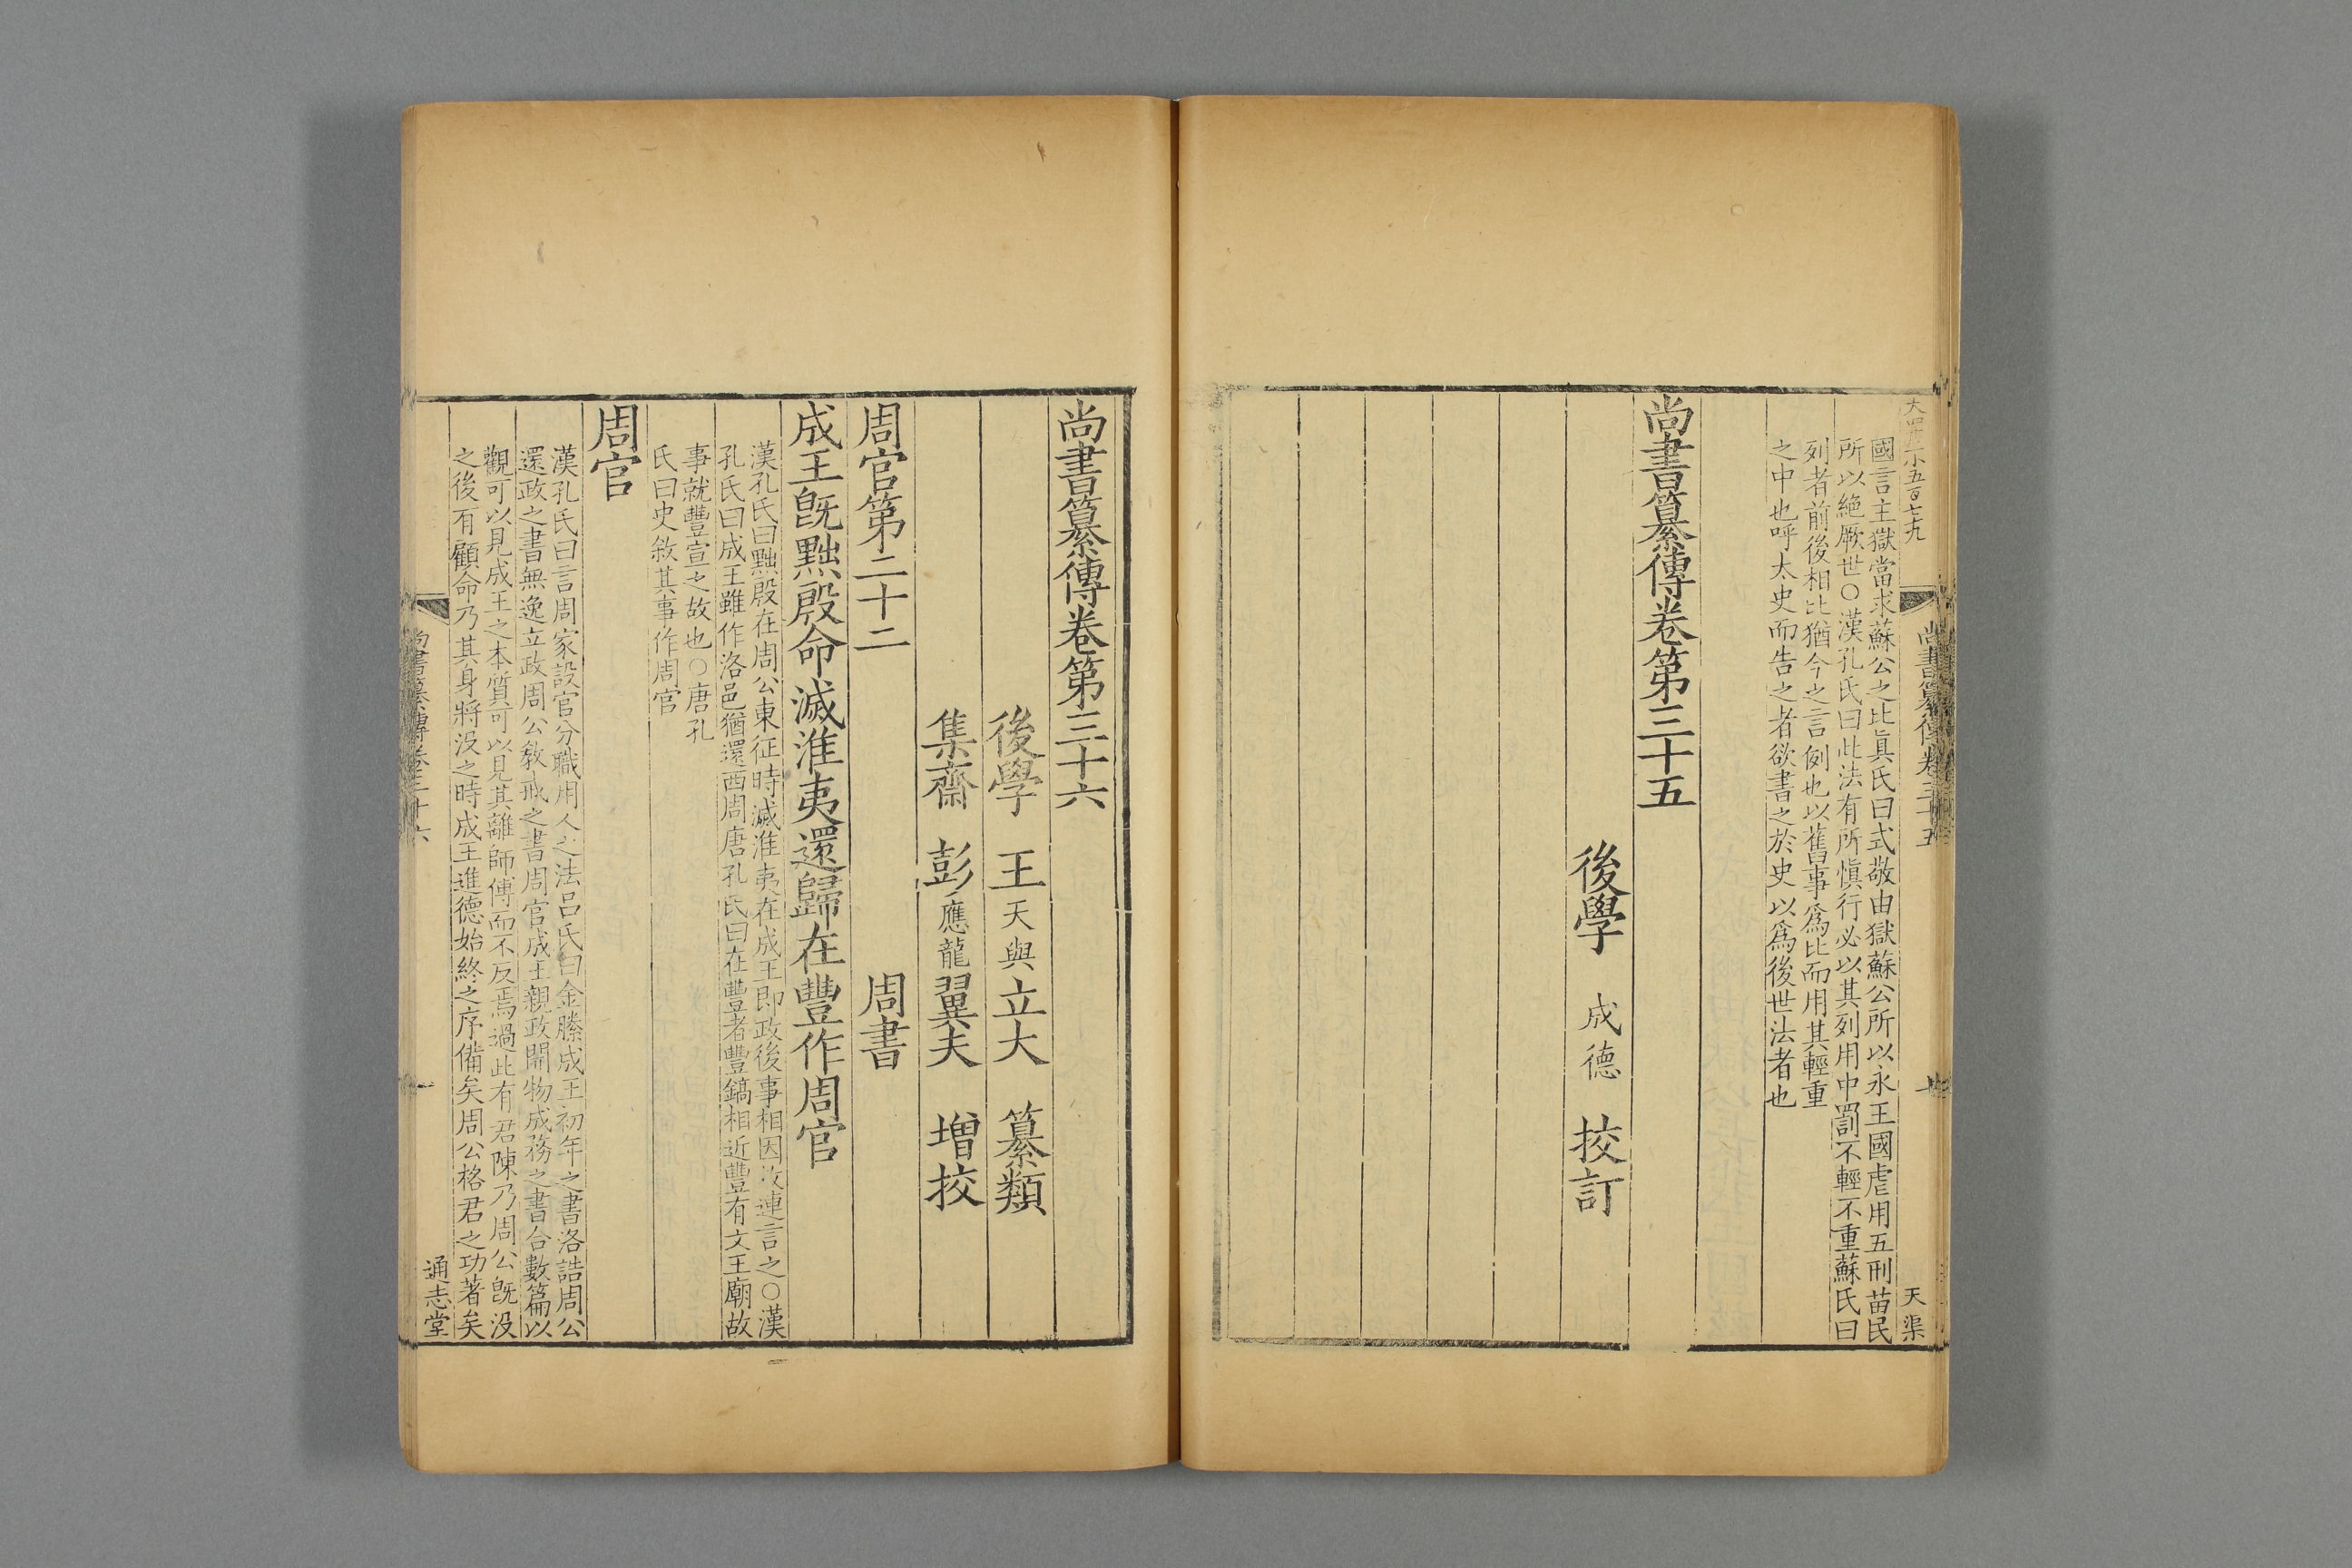 國言主獄當求蘇公之比真氏曰式敬由獄蘇公所以永王國虐用五刑苗民
所以絶厥世○漢孔氏曰此法有所慎行必以其列用中罰不輕不重蘇氏曰
列者前後相比猶今之言例也以舊事爲比而用其輕重
之中也呼太史而告之者欲書之於史以爲後世法者也
尚書纂傳卷第三十五
後學 成德 挍訂
尚書纂傳卷三十五
天渠
尚書纂傳卷第三十六
後學 王天與立大 纂類
集齋 彭應龍翼夫 增挍
周官第二十二 周書
成王旣黜殷命滅淮夷還歸在豐作周官
漢孔氏曰黜殷在周公東征時滅淮夷在成王即政後事相因故連言之○漢
孔氏曰成王雖作洛邑猶還西周唐孔氏曰在豐者豐鎬相近豐有文王廟故
事就豐宣之故也○唐孔
氏曰史敘其事作周官
周官
漢孔氏曰言周家設官分職用人之法呂氏曰金縢成王初年之書洛誥周公
還政之書無逸立政周公敎戒之書周官成王親政開物成務之書合數篇以
觀可以見成王之本質可以見其離師傅而不反焉過此有君陳乃周公旣没
之後有顧命乃其身將没之時成王進德始終之序備矣周公格君之功著矣
尚書纂傳卷三十六
一
通志堂